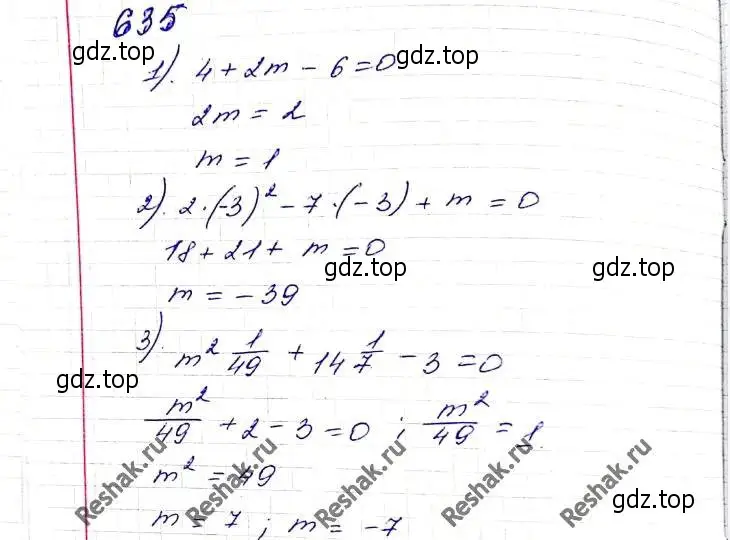 635
gdz.top
1). 4 + 2m - 6 = 0 gdz.top
2m = 2
m = 1
2). 2·(-3)² - 7·(-3) + m = 0
18 + 21 + m = 0
gdz.top
m = -39
3). m² 1/49 + 14 1/7 - 3 = 0
gdz.top
m²/49 + 2 - 3 = 0 ; m²/49 = 1.
m² = 49
gdz.top
m = 7 ; m = -7
Reshak.ru Reshak.ru Reshak.ru Reshak.ru Reshak.ru